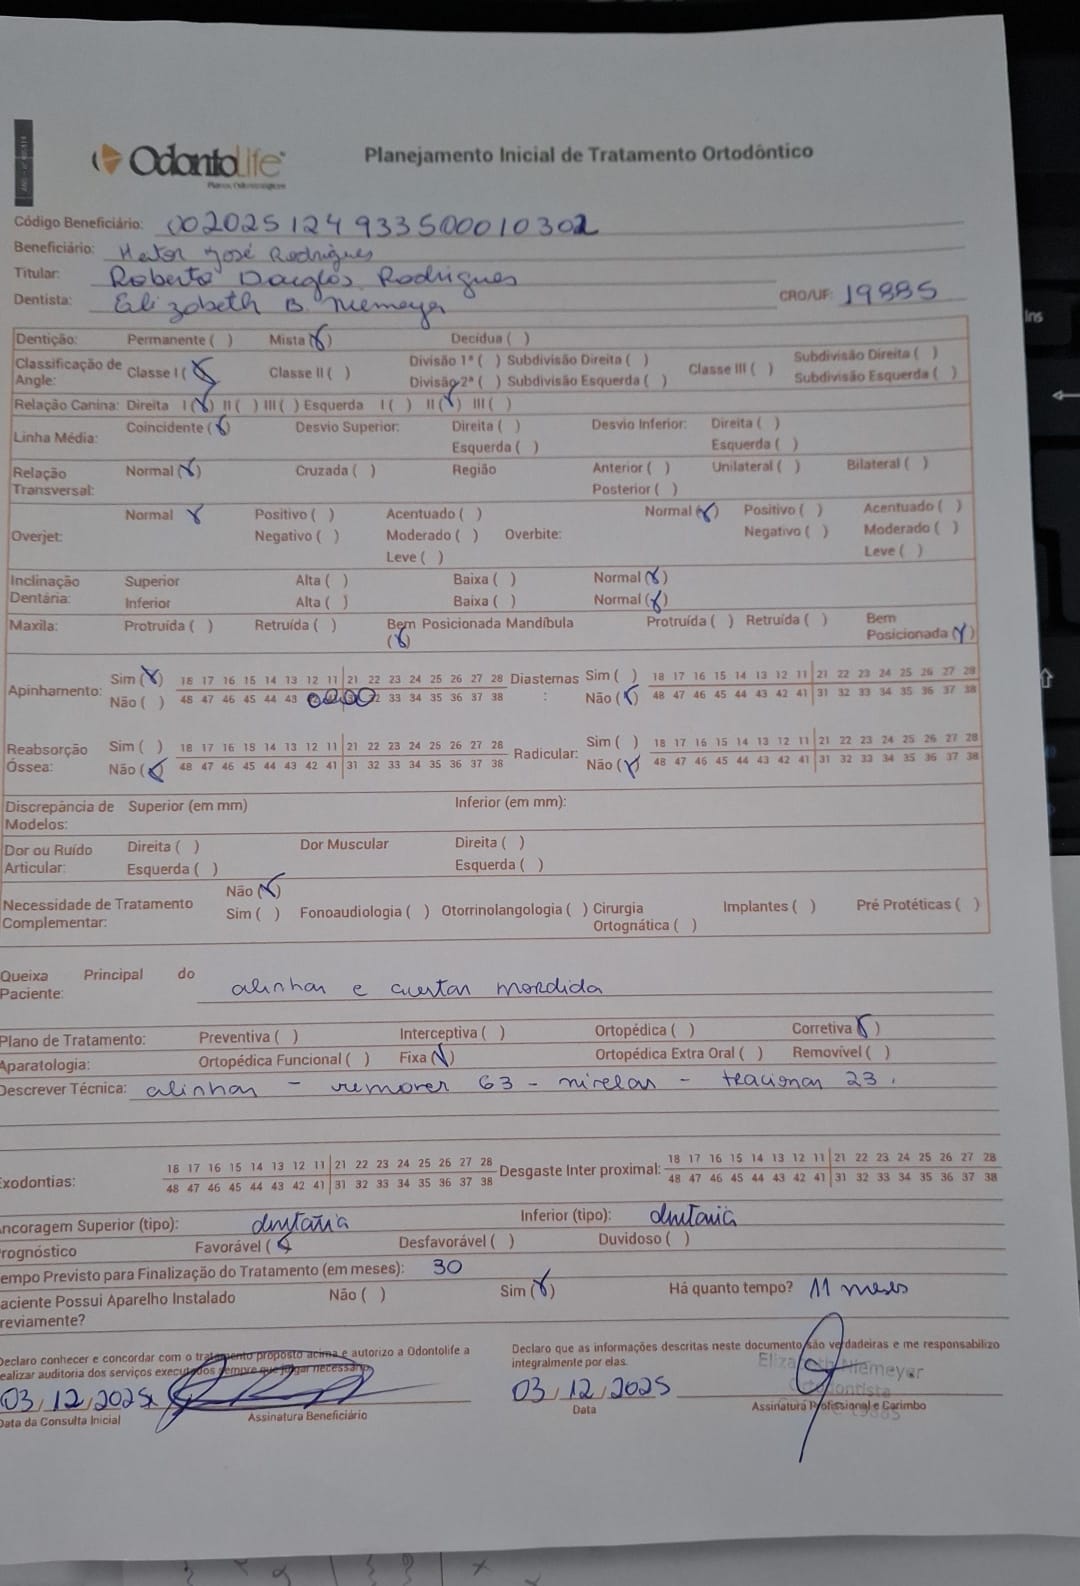 OdontoLife
Planos Odontológicos
Planejamento Inicial de Tratamento Ortodôntico
Código Beneficiário: 002025124933500010302
Beneficiário: Heitor José Rodrigues
Titular: Roberto Douglas Rodrigues
Dentista: Elizabeth B. Niemeyer CRO/UF: 19885
Dentição: Permanente ( ) Mista (X) Decídua ( )
Classificação de Angle: Classe I (X) Classe II ( ) Divisão 1ª ( ) Subdivisão Direita ( ) Classe III ( ) Subdivisão Direita ( )
Divisão 2ª ( ) Subdivisão Esquerda ( ) Subdivisão Esquerda ( )
Relação Canina: Direita I (X) II ( ) III ( ) Esquerda I ( ) II (X) III ( )
Linha Média: Coincidente (X) Desvio Superior: Direita ( ) Desvio Inferior: Direita ( )
Esquerda ( ) Esquerda ( )
Relação Transversal: Normal (X) Cruzada ( ) Região Anterior ( ) Unilateral ( ) Bilateral ( )
Posterior ( )
Normal X Positivo ( ) Acentuado ( ) Normal (X) Positivo ( ) Acentuado ( )
Overjet: Negativo ( ) Moderado ( ) Overbite: Negativo ( ) Moderado ( )
Leve ( ) Leve ( )
Inclinação Superior Alta ( ) Baixa ( ) Normal (X)
Dentária: Inferior Alta ( ) Baixa ( ) Normal (X)
Maxila: Protruída ( ) Retruída ( ) Bem Posicionada (X) Mandíbula Protruída ( ) Retruída ( ) Bem Posicionada (X)
Apinhamento: Sim (X) 18 17 16 15 14 13 12 11 21 22 23 24 25 26 27 28 Diastemas : Sim ( ) 18 17 16 15 14 13 12 11 21 22 23 24 25 26 27 28
Não ( ) 48 47 46 45 44 43 42 41 31 32 33 34 35 36 37 38 Não (X) 48 47 46 45 44 43 42 41 31 32 33 34 35 36 37 38
Reabsorção Óssea: Sim ( ) 18 17 16 15 14 13 12 11 21 22 23 24 25 26 27 28 Radicular: Sim ( ) 18 17 16 15 14 13 12 11 21 22 23 24 25 26 27 28
Não (X) 48 47 46 45 44 43 42 41 31 32 33 34 35 36 37 38 Não (X) 48 47 46 45 44 43 42 41 31 32 33 34 35 36 37 38
Discrepância de Modelos: Superior (em mm) Inferior (em mm):
Dor ou Ruído Articular: Direita ( ) Dor Muscular Direita ( )
Esquerda ( ) Esquerda ( )
Não (X)
Necessidade de Tratamento Complementar: Sim ( ) Fonoaudiologia ( ) Otorrinolangologia ( ) Cirurgia Ortognática ( ) Implantes ( ) Pré Protéticas ( )
Queixa Principal do Paciente: alinhar e acertar mordida
Plano de Tratamento: Preventiva ( ) Interceptiva ( ) Ortopédica ( ) Corretiva (X)
Aparatologia: Ortopédica Funcional ( ) Fixa (X) Ortopédica Extra Oral ( ) Removível ( )
Descrever Técnica: alinhar - remover 63 - nivelar - tracionar 23.
Exodontias: 18 17 16 15 14 13 12 11 21 22 23 24 25 26 27 28 Desgaste Inter proximal: 18 17 16 15 14 13 12 11 21 22 23 24 25 26 27 28
48 47 46 45 44 43 42 41 31 32 33 34 35 36 37 38 48 47 46 45 44 43 42 41 31 32 33 34 35 36 37 38
ncoragem Superior (tipo): dentária Inferior (tipo): dentaria
rognóstico Favorável (X) Desfavorável ( ) Duvidoso ( )
empo Previsto para Finalização do Tratamento (em meses): 30
aciente Possui Aparelho Instalado reviamente? Não ( ) Sim (X) Há quanto tempo? 11 meses
Declaro conhecer e concordar com o tratamento proposto acima e autorizo a Odontolife a
ealizar auditoria dos serviços executados sempre que julgar necessário.
Declaro que as informações descritas neste documento são verdadeiras e me responsabilizo
integralmente por elas.
Elizabeth Niemeyer
Ortodontista
19885
03/12/2025 03/12/2025
Data da Consulta Inicial Assinatura Beneficiário Data Assinatura Profissional e Carimbo
Ins